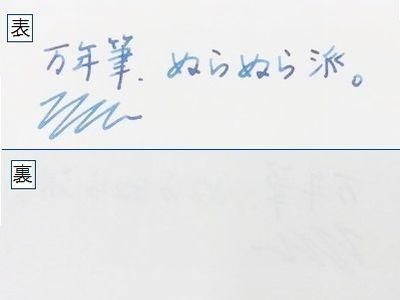 表
万年筆、ぬらぬら派。
裏